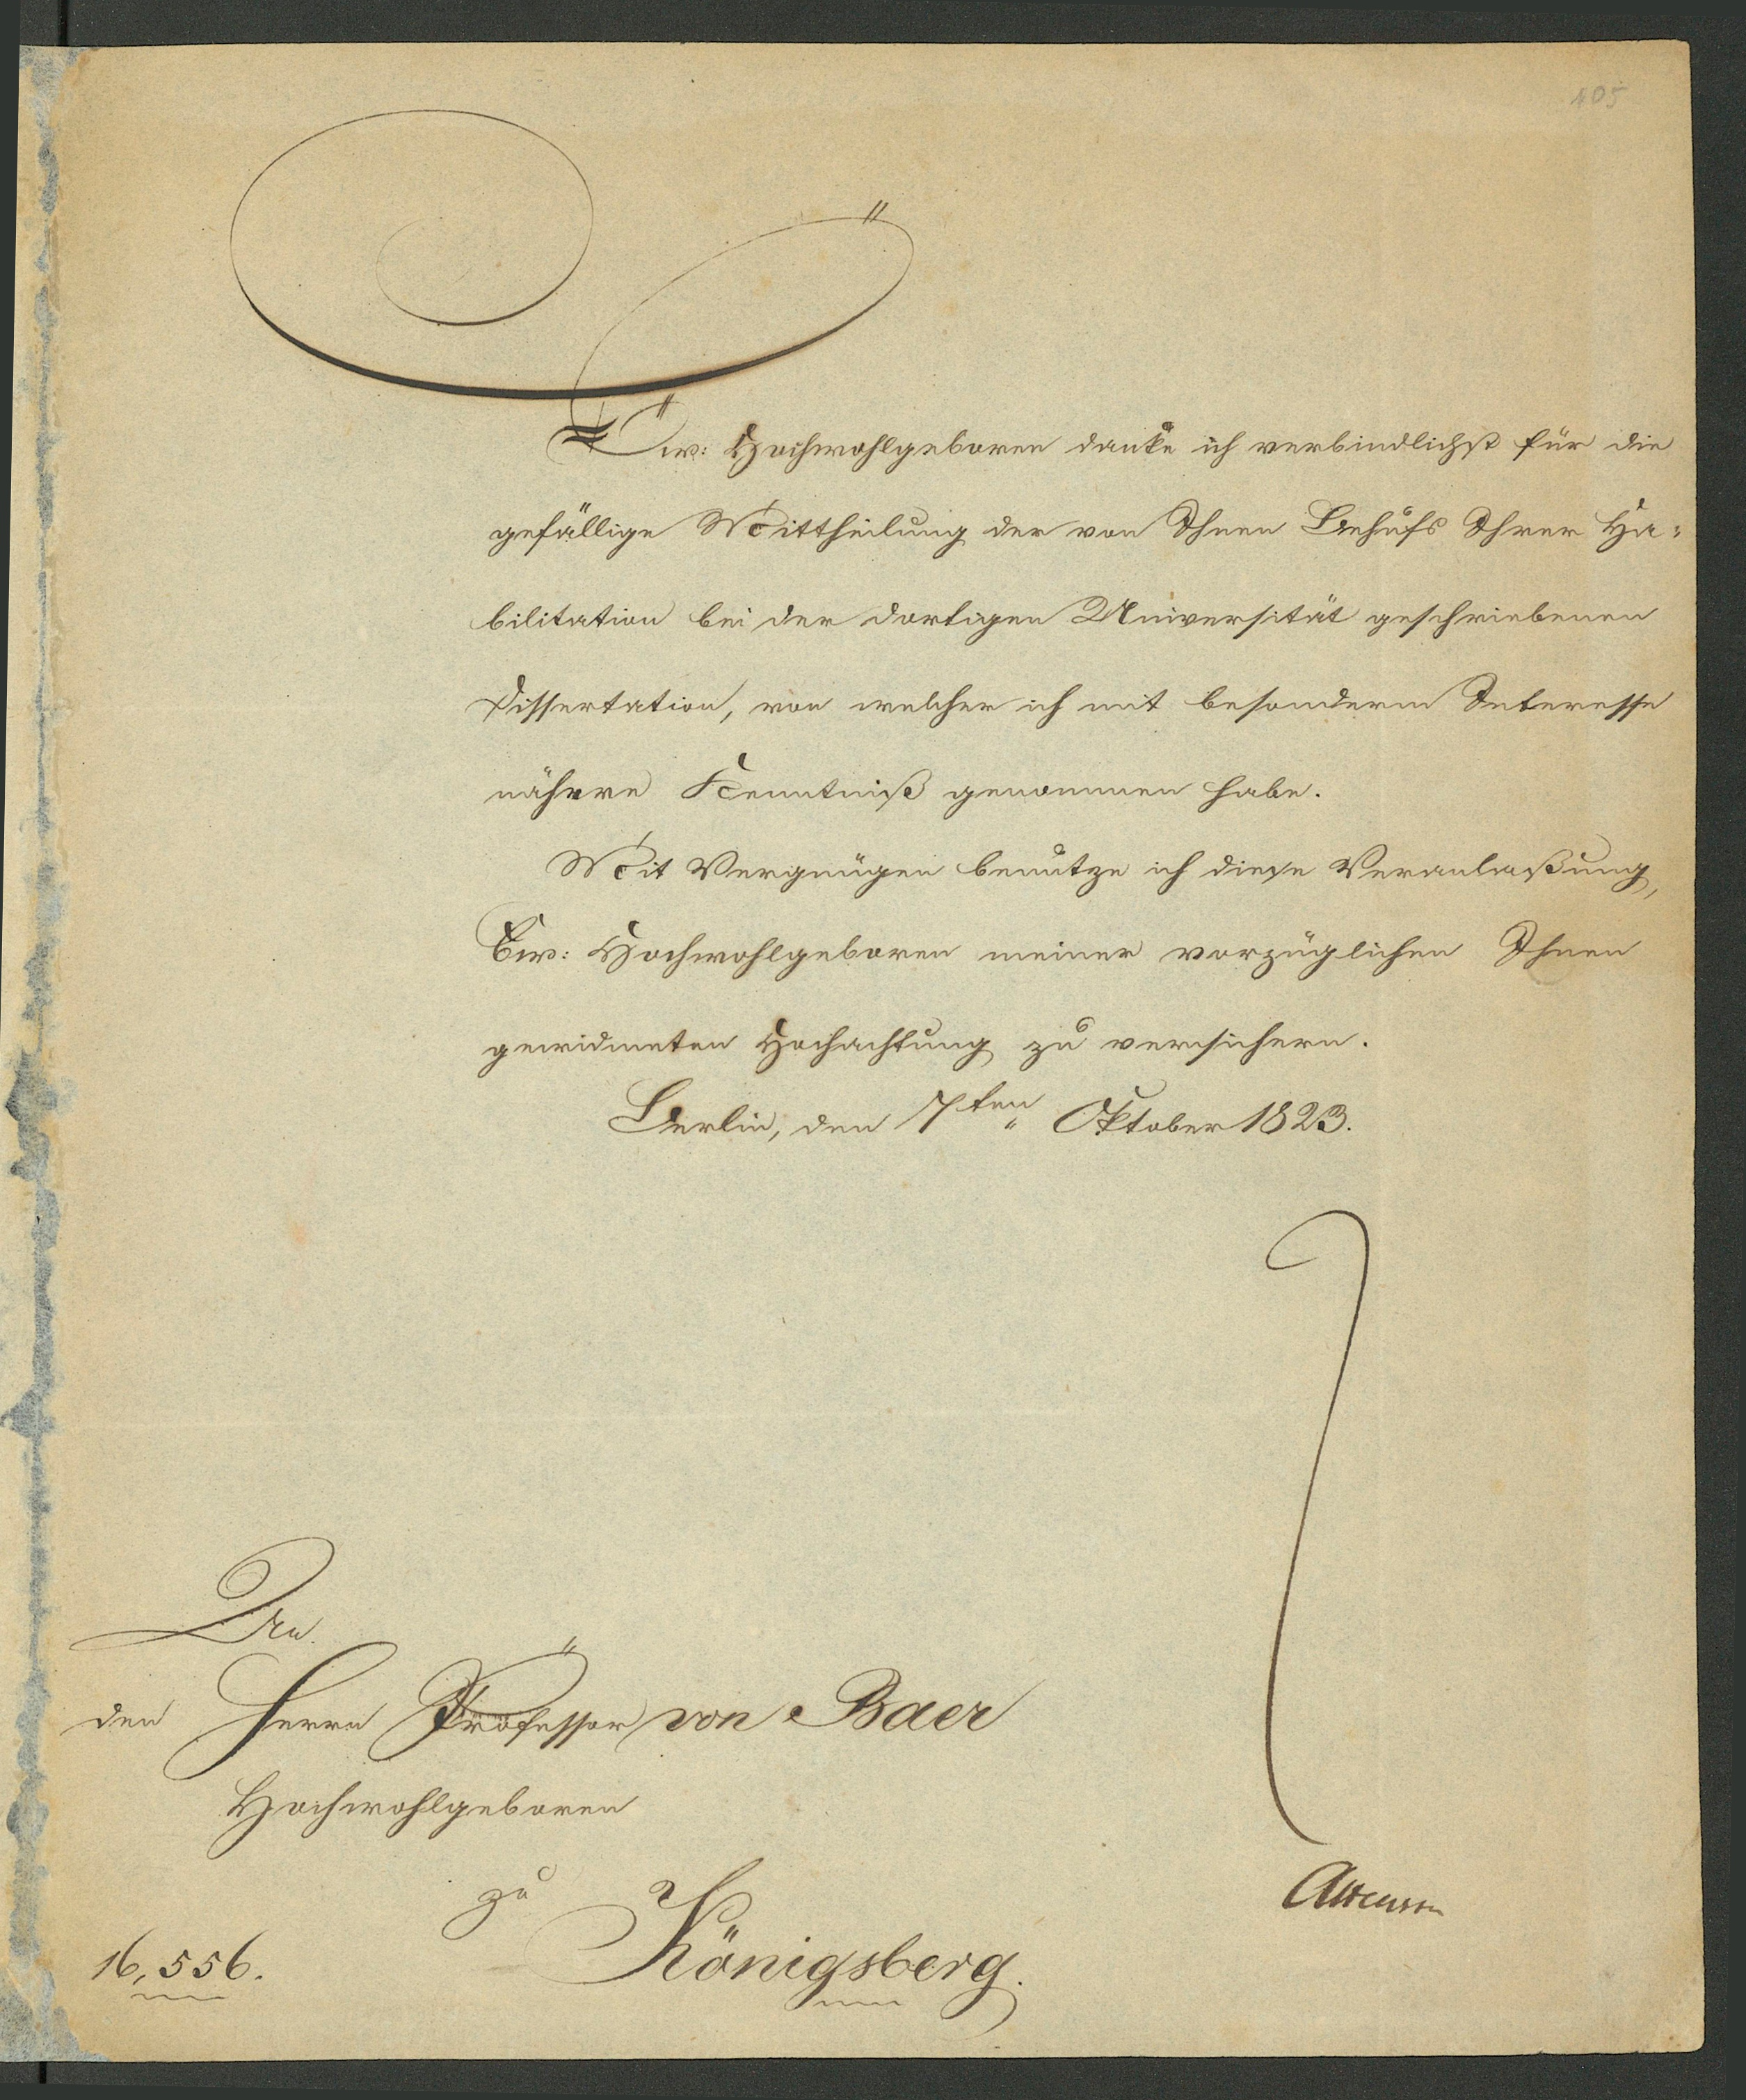 405
Ew: Hochwohlgeboren danke ich verbindlichst für die
gefällige Mittheilung der von Ihnen Behufs Ihrer Ha-
bilitation bei der dortigen Universität geschriebenen
Dissertation, von welcher ich mit besonderm Interesse
nähere Kenntniß genommen habe.
Mit Vergnügen benutze ich diese Veranlaßung,
Ew: Hochwohlgeboren meiner vorzüglichen Ihnen
gewidmeten Hochachtung zu versichern.
Berlin, den 7ten Oktober 1823.
An
den Herrn Professor von Baer
Hochwohlgeboren
zu
Königsberg.
Altenstein
16,556.